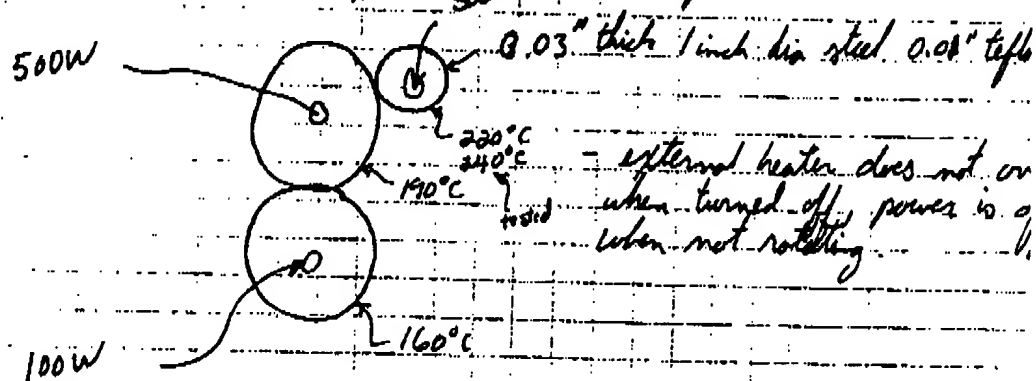 500W
0.03" thick 1 inch dia steel 0.01" tefl
220°C
240°C
190°C
tested
- external heater does not ov
when turned off, power is o
when not rotating.
160°C
100W